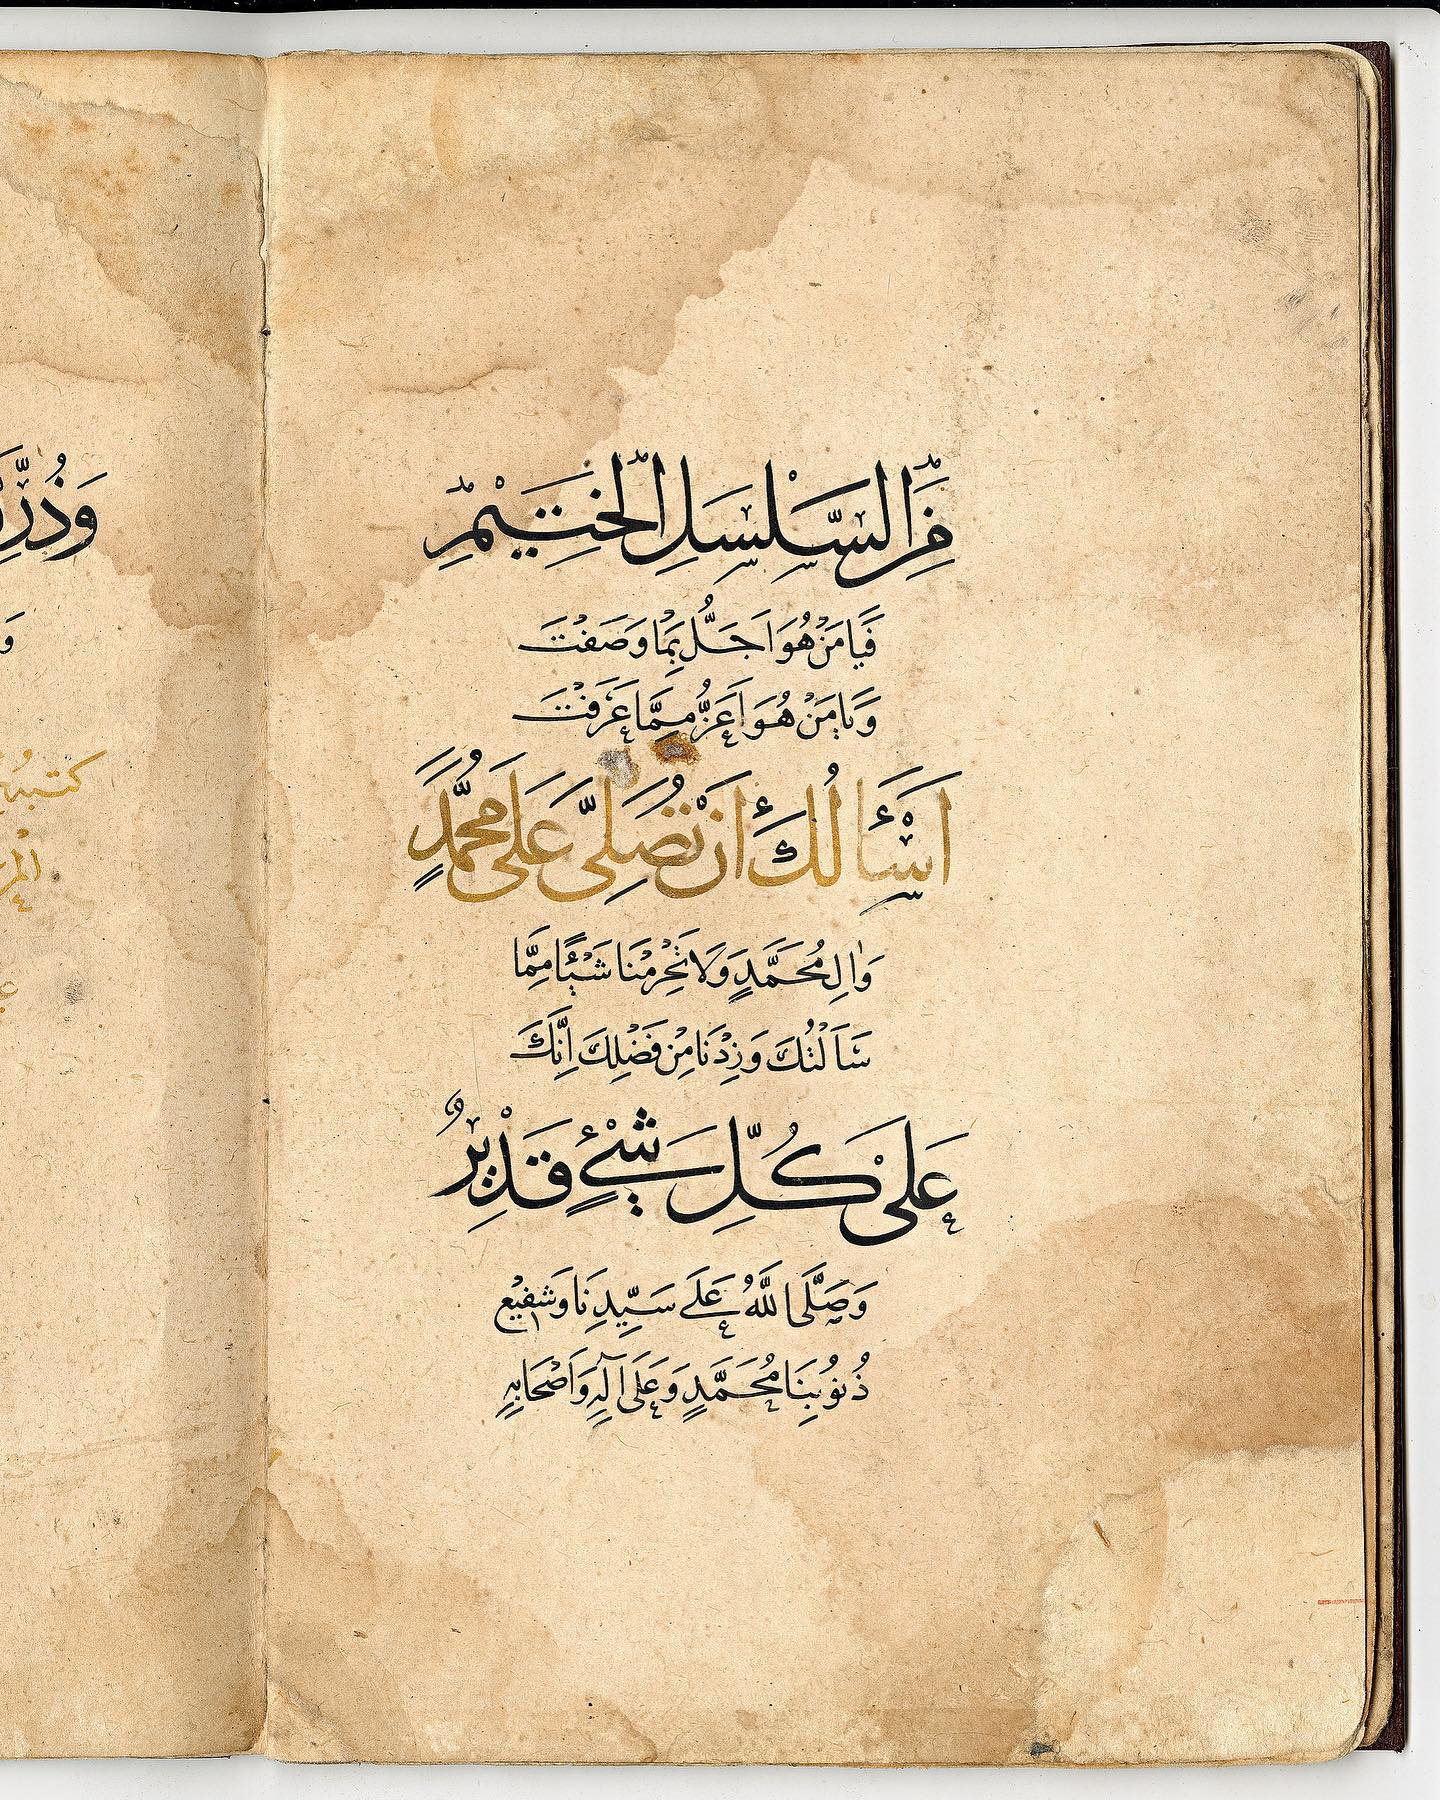 مِنَ السَّلْسَلِ الْخَتِيْمِ
فَيَا مَنْ هُوَ اَجَلُّ بِمَا وَصَفْتَ
وَيَا مَنْ هُوَ اَعَزُّ مِمَّا عَرَفْتَ
اَسْأَلُكَ اَنْ تُصَلِّىَ عَلَى مُحَمَّدٍ
وَاٰلِ مُحَمَّدٍ وَلَا تَحْرِمْنَا شَيْئًا مِمَّا
سَاَلْتُكَ وَزِدْنَا مِنْ فَضْلِكَ اِنَّكَ
عَلَى كُلِّ شَيْءٍ قَدِيْرٌ
وَصَلَّى اللّٰهُ عَلَى سَيِّدِنَا وَشَفِيْعِ
ذُنُوْبِنَا مُحَمَّدٍ وَعَلَى آلِهِ وَاَصْحَابِهِ
كتبه